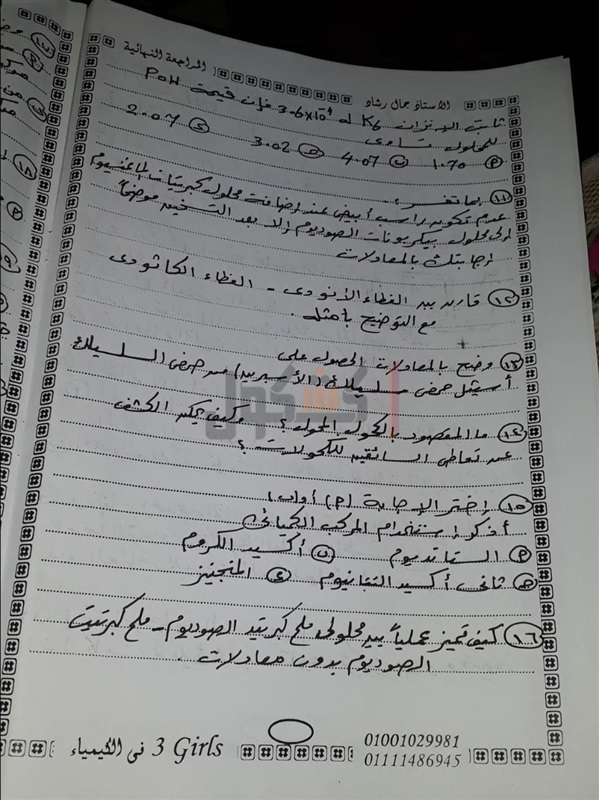 المراجعة النهائية
الأستاذ جمال رشاد
ثابت الاتزان Kb له 3.6×10⁻⁴ فإن قيمة POH
للمحلول تساوى
أ 1.70 ب 4.07 ج 3.02 د 2.07
١١ بما تفسر :
عدم تكون راسب أبيض عند إضافة محلول كبريتات الماغنسيوم
إلى محلول بيكربونات الصوديوم إلا بعد التسخين موضحاً
إجابتك بالمعادلات
١٢ قارن بين الغطاء الأنودى - الغطاء الكاثودى
مع التوضيح بأمثلة .
١٣ وضح بالمعادلات الحصول على
أسيتيل حمض سلسليك (الأسبرين) من حمض السلسليك
١٤ ما المقصود بالكحول المحول ؟ وكيف يمكن الكشف
عن تعاطى السائقين للكحولات ؟
١٥ إختر الإجابة (أ) أو (ب)
أذكر إستخدام المركب الكيميائى
أ السكانديوم ب أكسيد الكروم
ج ثانى أكسيد التيتانيوم د المنجنيز
١٦ كيف تميز عملياً بين محلولى ملح كبريتيد الصوديوم - ملح كبريتيت
الصوديوم بدون معادلات
3 Girls فى الكيمياء
01001029981
01111486945
كشكول